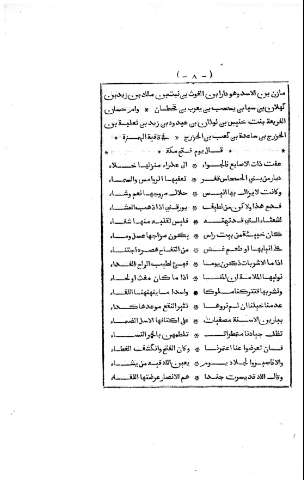 ( ٨ )
مازن بن الاسد وهو دارا بن الغوث بن نبت بن مالك بن زيد بن
كهلان بن سبا بن يشجب بن يعرب بن قحطان * وام حسان
الفريعة بنت خنيس بن لوذان بن عبدود بن زيد بن ثعلبة بن
الخزرج بن ساعدة بن كعب بن الخزرج * في قافية الهمزة *
* قال يوم فتح مكة *
عفت ذات الاصابع فالجواء * الى عذراء منزلها خلاء
ديار من بني الحسحاس قفر * تعفيها الروامس والسماء
وكانت لا يزال بها انيس * خلال مروجها نعم وشاء
فدع هذا ولكن من لطيف * يؤرقني اذا ذهب العشاء
لشعثاء التي قد تيمته * فليس لقلبه منها شفاء
كان خبيئة من بيت راس * يكون مزاجها عسل وماء
على انيابها او طعم غض * من التفاح هصره اجتناء
اذا ما الاشربات ذكرن يوما * فهن لطيب الراح الفداء
نوليها الملامة ان المنا * اذا ما كان مغث او لحاء
ونشربها فتتركنا ملوكا * واسدا ما ينهنهنا اللقاء
عدمنا خيلنا ان لم تروها * تثير النقع موعدها كداء
يبارين الاسنة مصغيات * على اكتافها الاسل الظماء
تظل جيادنا متمطرات * تلطمهن بالخمر النساء
فاما تعرضوا عنا اعتمرنا * وكان الفتح وانكشف الغطاء
والا فاصبروا لجلاد يوم * يعين الله فيه من يشاء
وقال الله قد يسرت جندا * هم الانصار عرضتها اللقاء